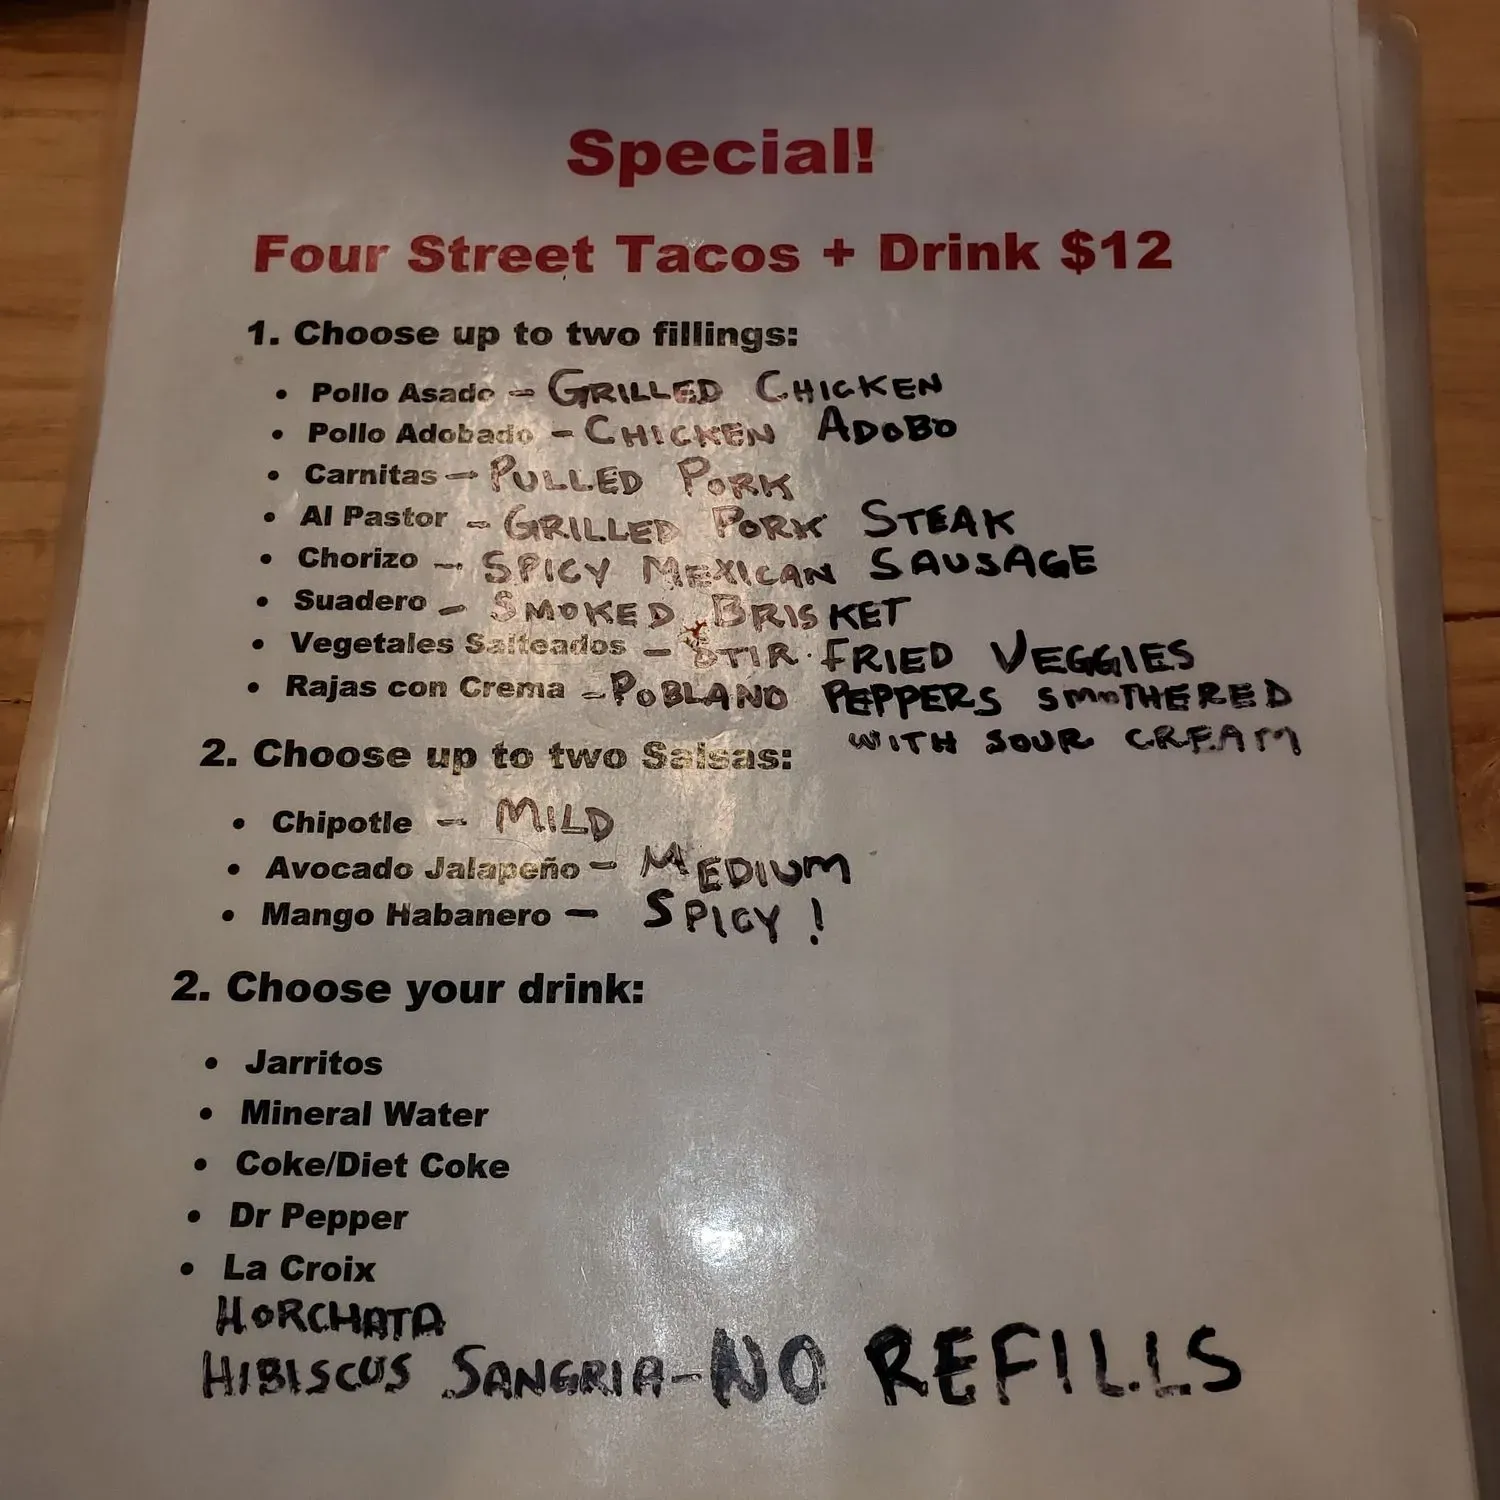 Special!
Four Street Tacos + Drink $12
1. Choose up to two fillings:
• Pollo Asado - GRILLED CHICKEN
• Pollo Adobado - CHICKEN ADOBO
• Carnitas - PULLED PORK
• Al Pastor - GRILLED PORK STEAK
• Chorizo - SPICY MEXICAN SAUSAGE
• Suadero - SMOKED BRISKET
• Vegetales Salteados - STIR FRIED VEGGIES
• Rajas con Crema - POBLANO PEPPERS SMOTHERED
WITH SOUR CREAM
2. Choose up to two Salsas:
• Chipotle - MILD
• Avocado Jalapeño - MEDIUM
• Mango Habanero - SPICY!
2. Choose your drink:
• Jarritos
• Mineral Water
• Coke/Diet Coke
• Dr Pepper
• La Croix
HORCHATA
HIBISCUS SANGRIA - NO REFILLS